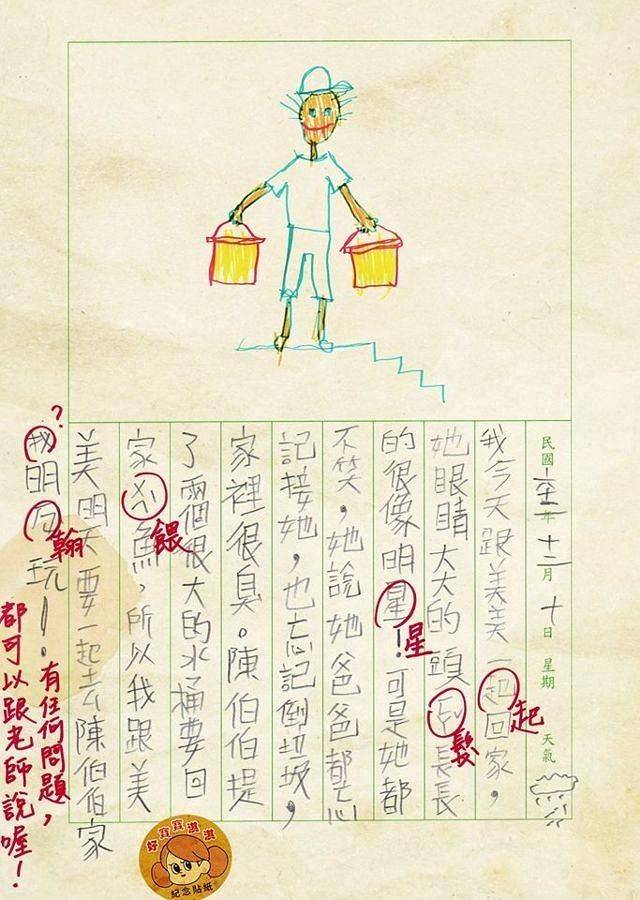 民國 年十二月十日 星期 天氣
我今天跟美美一起回家，
起
她眼睛大大的頭 長長
髮
的很像明星！可是她都
星
不笑，她說她爸爸都忘
記接她，也忘記倒垃圾，
家裡很臭。陳伯伯提
了兩個很大的水桶要回
家 魚，所以我跟美
餵
美明天要一起去陳伯伯家
？
明 玩！。
翰
有任何問題，
都可以跟老師說喔！
好寶寶淇淇
紀念貼紙